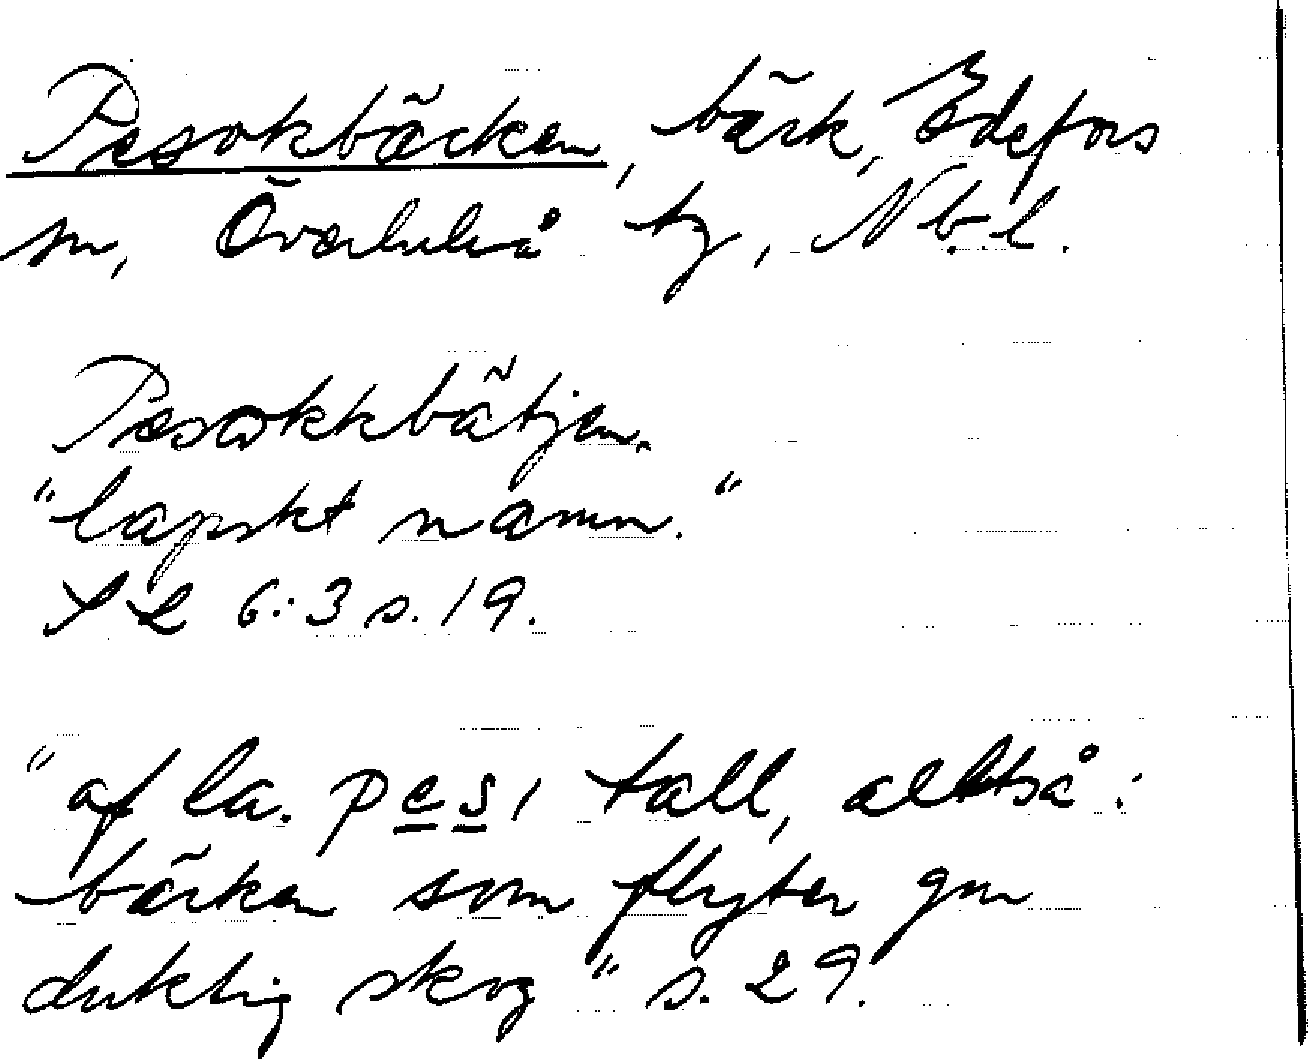 Pesokbäcken, bäck, Edefors
sn, Överluleå tg, Nb.l.
Pesokkbätjen.
"lapskt namn."
SL 6:3 s. 19.
"af la. pes, tall, alltså:
bäcken som flyter gm
duktig skog" s. 29.